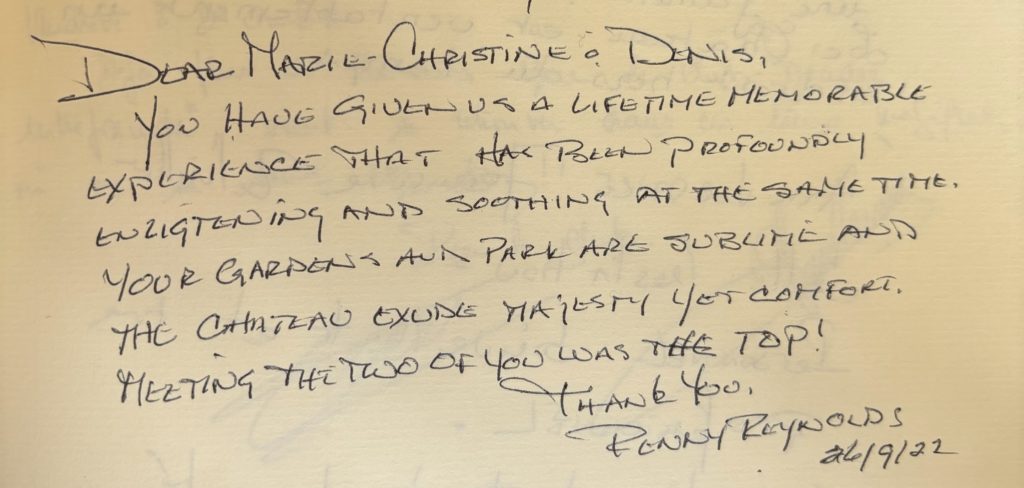 DEAR MARIE-CHRISTINE & DENIS,
YOU HAVE GIVEN US A LIFETIME MEMORABLE
EXPERIENCE THAT HAS BEEN PROFOUNDLY
ENLIGTENING AND SOOTHING AT THE SAME TIME.
YOUR GARDENS AND PARK ARE SUBLIME AND
THE CHATEAU EXUDE MAJESTY YET COMFORT.
MEETING THE TWO OF YOU WAS THE TOP!
THANK YOU.
PENNY REYNOLDS
26/9/22